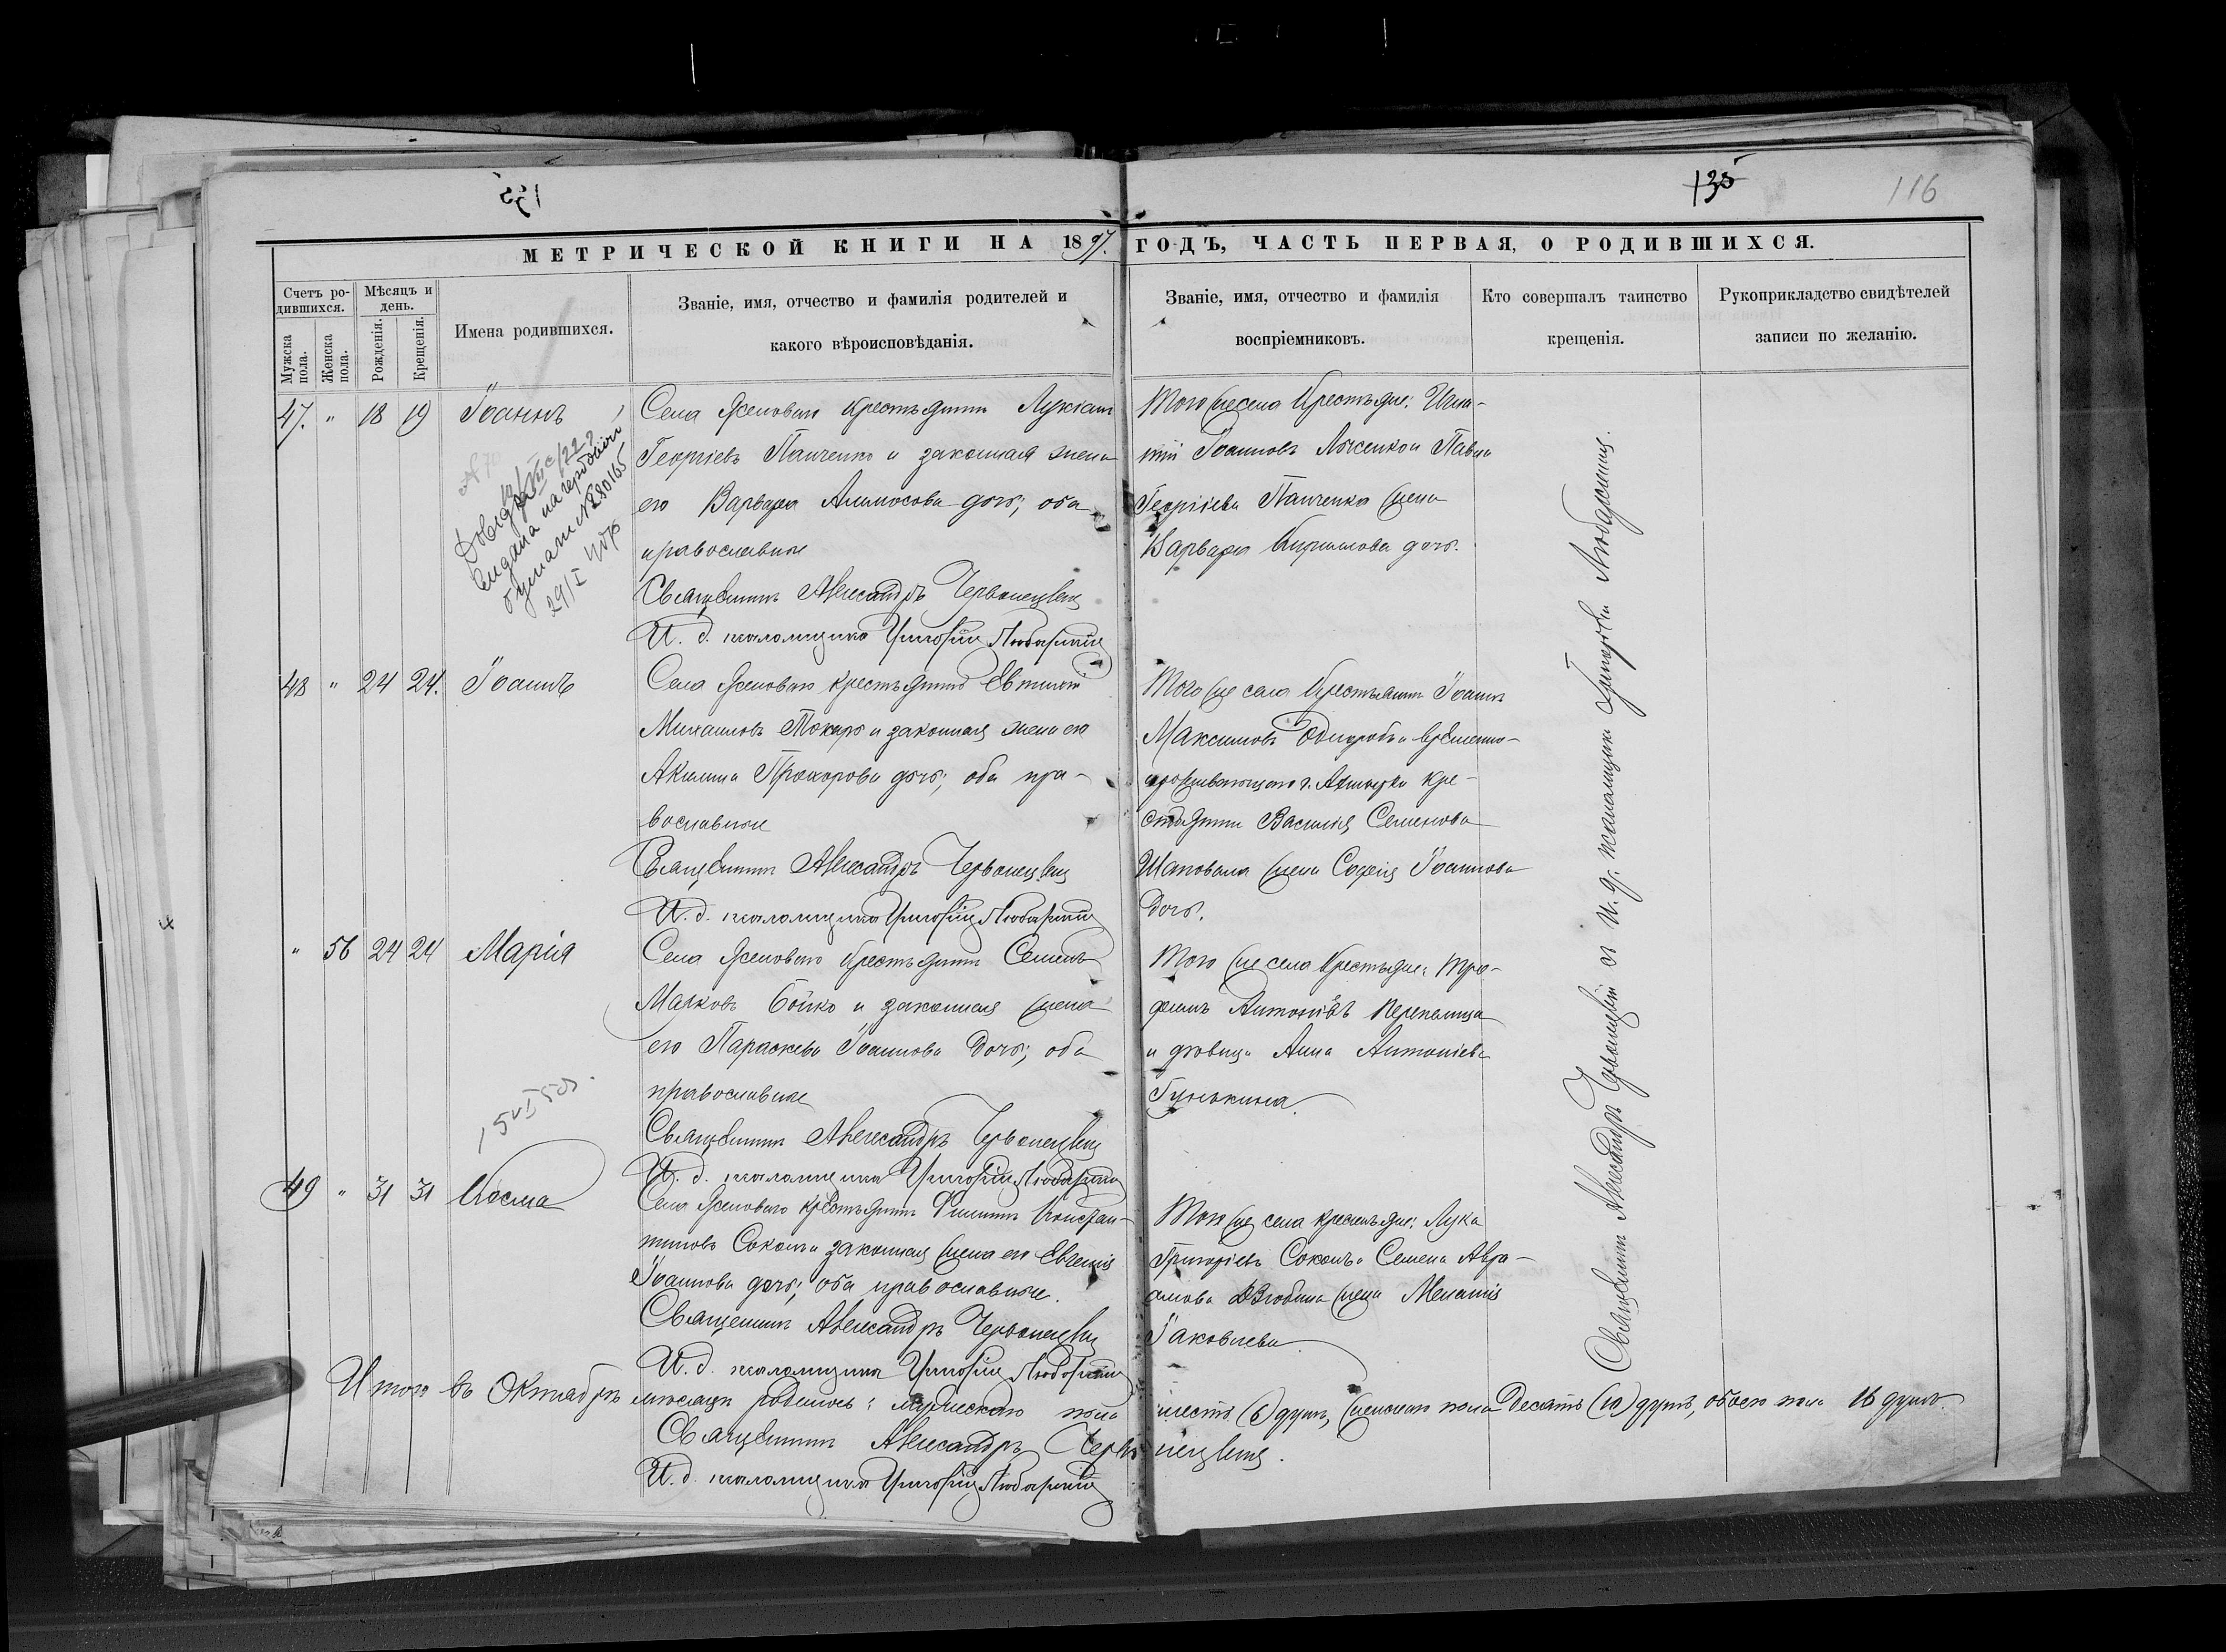 135
135
116
МЕТРИЧЕСКОЙ КНИГИ НА 1897. ГОДЪ, ЧАСТЬ ПЕРВАЯ, О РОДИВШИХСЯ.
Счетъ родившихся.
Мужска пола.
Женска пола.
Мѣсяцъ и день.
Рожденія.
Крещенія.
Имена родившихся.
Званіе, имя, отчество и фамилія родителей и
какого вѣроисповѣданія.
Званіе, имя, отчество и фамилія
воспріемниковъ.
Кто совершалъ таинство
крещенія.
Рукоприкладство свидѣтелей
записи по желанію.
47. " 18 19 Іоаннъ
Села Ясеноваго крестьянинъ Лукіанъ
Георгіевъ Панченко и законная жена
его Варвара дочь; оба
православные
Священникъ Александръ Червонецкій
И. д. псаломщика Григорій Любарскій
Того же села крестьяне:
Іоанновъ и Павла
Георгіева Панченка жена
Варвара Кириллова дочь.
29/I
48 " 24 24. Іоаннъ
Села Ясеноваго крестьянинъ Евтихій
Михаиловъ Токарь и законная жена его
Акилина Прохорова дочь; оба пра-
вославные
Священникъ Александръ Червонецкій
И. д. псаломщика Григорій Любарскій
Того же села крестьянинъ Іоаннъ
Максимовъ и временно-
проживающаго г. кре-
стьянина Василія Семенова
Шаповала жена Софія Іоаннова
дочь.
" 56 24 24 Марія
Села Ясеноваго крестьянинъ Семенъ
Марковъ Бойко и законная жена
его Параскева Іоаннова дочь; оба
православные
Священникъ Александръ Червонецкій
И. д. псаломщика Григорій Любарскій
Того же села крестьяне: Тро-
фимъ Антоніевъ Перепелица
и вдовица Анна Антоніева
Гунькина.
49 " 31 31 Косма
Села Ясеноваго крестьянинъ Филиппъ Констан-
тиновъ Соколъ и законная жена его Евгенія
Іоаннова дочь; оба православные.
Священникъ Александръ Червонецкій
И. д. псаломщика Григорій Любарскій
Того же села крестьяне: Лука
Григоріевъ Соколъ и Семена Авра-
амова жена Меланія
Іаковлева.
Священникъ Александръ Червонецкій и И. д. псаломщика Григорій Любарскій.
Итого въ Октябрѣ мѣсяцѣ родилось: мужескаго пола шесть (6) душъ, женскаго пола десять (10) душъ, обоего пола 16 душъ.
Священникъ Александръ Червонецкій.
И. д. псаломщика Григорій Любарскій